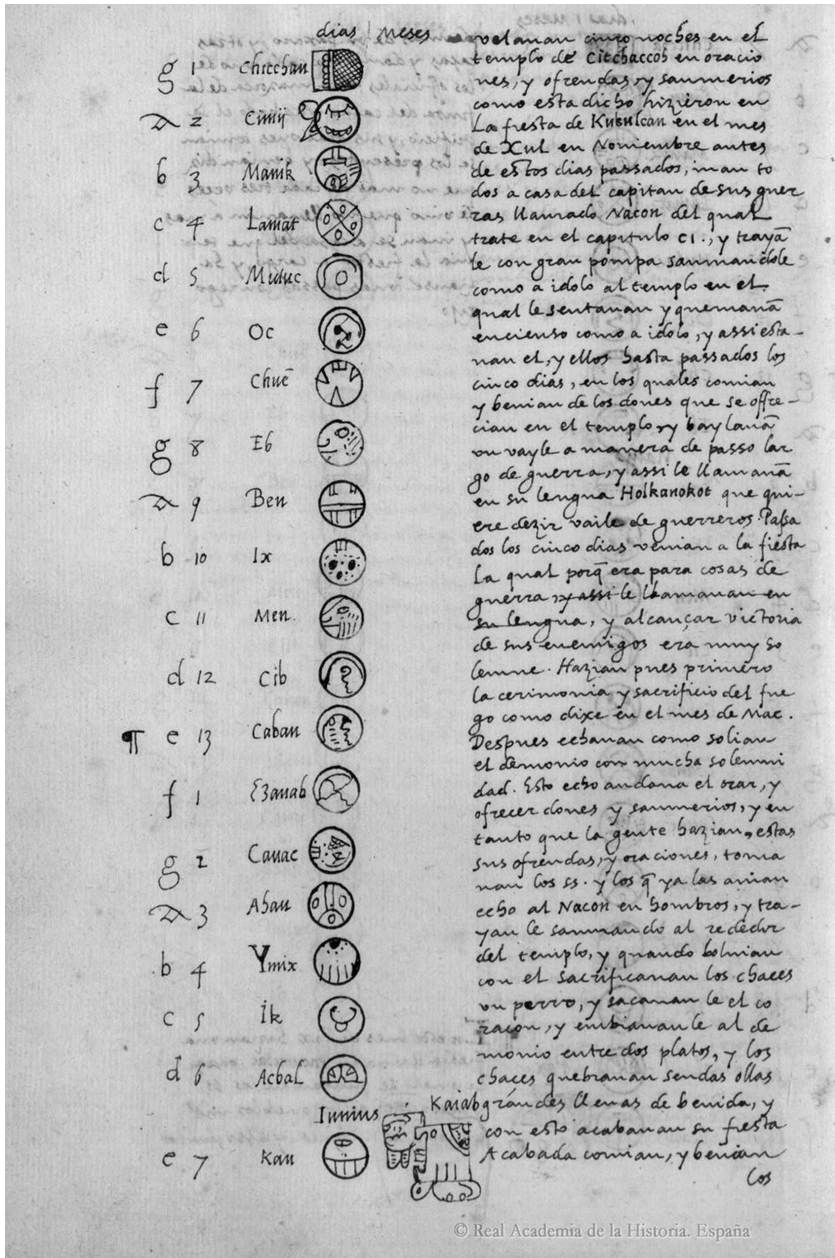 dias | Meses
g 1 Chicchan
A 2 Cimij
b 3 Manik
c 4 Lamat
d 5 Muluc
e 6 Oc
f 7 Chuē
g 8 Eb
A 9 Ben
b 10 Ix
c 11 Men
d 12 Cib
¶ e 13 Caban
f 1 Ezanab
g 2 Cauac
A 3 Ahau
b 4 Ymix
c 5 ik
d 6 Acbal
Iunius
Kaiab
e 7 Kan
velauan cinco noches en el
templo de Citchaccoh en oracio
nes, y ofrendas, y saumerios
como esta dicho hizieron en
La fiesta de Kukulcan en el mes
de Xul en Nouiembre antes
de estos dias passados, iuan to
dos a casa del capitan de sus guer
ras llamado Nacon del qual
trate en el capitulo CI., y trayā
le con gran pompa saumandole
como a idolo al templo en el
qual le sentauan y quemauā
encienso como a idolo, y assi esta-
uan el, y ellos hasta passados los
cinco dias, en los quales comian
y beuian de los dones que se offre-
cian en el templo, y baylauā
vn vayle a manera de passo lar
go de guerra, y assi le llamauā
en su lengua Holkanokot que qui-
ere dezir vaile de guerreros. Passa
dos los cinco dias venian a la fiesta
La qual porq̄ era para cosas de
guerra, y assi le llamauan en
su lengua, y alcançar victoria
de sus enemigos era muy so
lemne. Hazian pues primero
la cerimonia y sacrificio del fue
go como dixe en el mes de Mac.
Despues echauan como solian
el demonio con mucha solemni
dad. Esto echo andaua el orar, y
ofrecer dones y saumerios, y en
tanto que la gente hazian, estas
sus ofrendas, y oraciones, toma
uan los ss. y los q̄ ya las auian
echo al Nacon en hombros, y tra-
yan le saumando al rededor
del templo, y quando boluian
con el sacrificauan los chaces
vn perro, y sacauan le el co
raçon, y embiauan le al de
monio entre dos platos, y los
chaces quebrauan sendas ollas
grandes llenas de beuida, y
con esto acabauan su fiesta
Acabada comian, y beuian
los
© Real Academia de la Historia. España